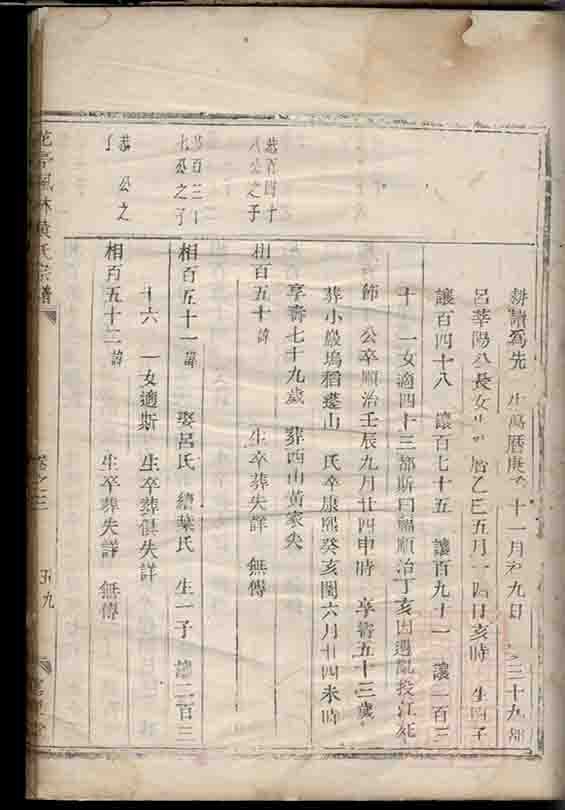 耕讀爲先 生萬曆庚 十一月初九日 三十九都
呂莘陽公長女 生 曆乙巳五月 四日亥時 生四子
讓百四十八 讓百七十五 讓百九十一 讓一百三
十 一女適四十三都斯曰 順治丁亥因遇亂投江死
節 公卒順治壬辰九月廿四申時 享壽五十三歲
葬小巖塢稻蓬山 氏卒康熙癸亥閏六月廿四未時
享壽七十九歲 葬西山黃家尖
恭百四十
八公之子
相百五十 諱 生卒葬失詳 無傳
恭百三十
七公之子
相百五十一 諱 娶呂氏 繼葉氏 生一子 讓二百三
十六 一女適斯 生卒葬俱失詳
恭 公之
子
相百五十二 諱 生卒葬失詳 無傳
黃氏宗譜
卷之三
九